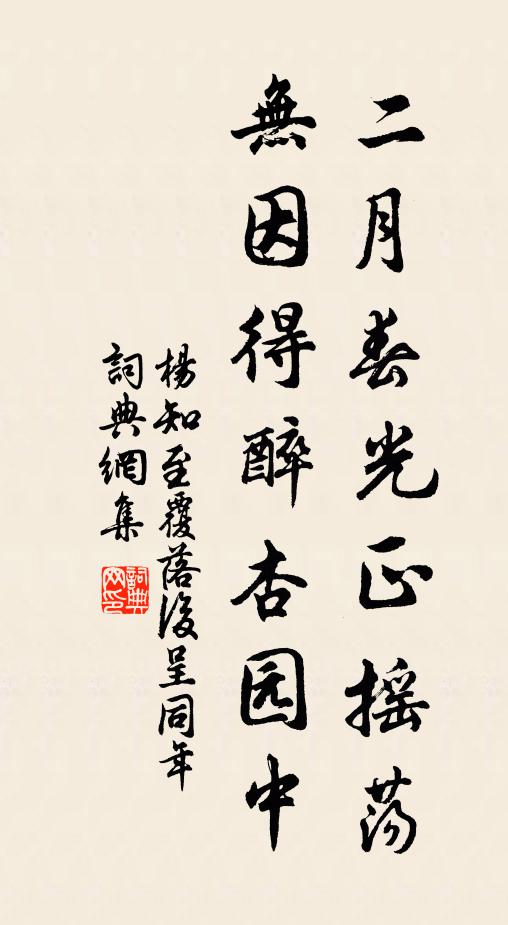 二月春光正摇荡
無因得醉杏园中
楊知至覆落後呈同年
詞典網集
詞典網印